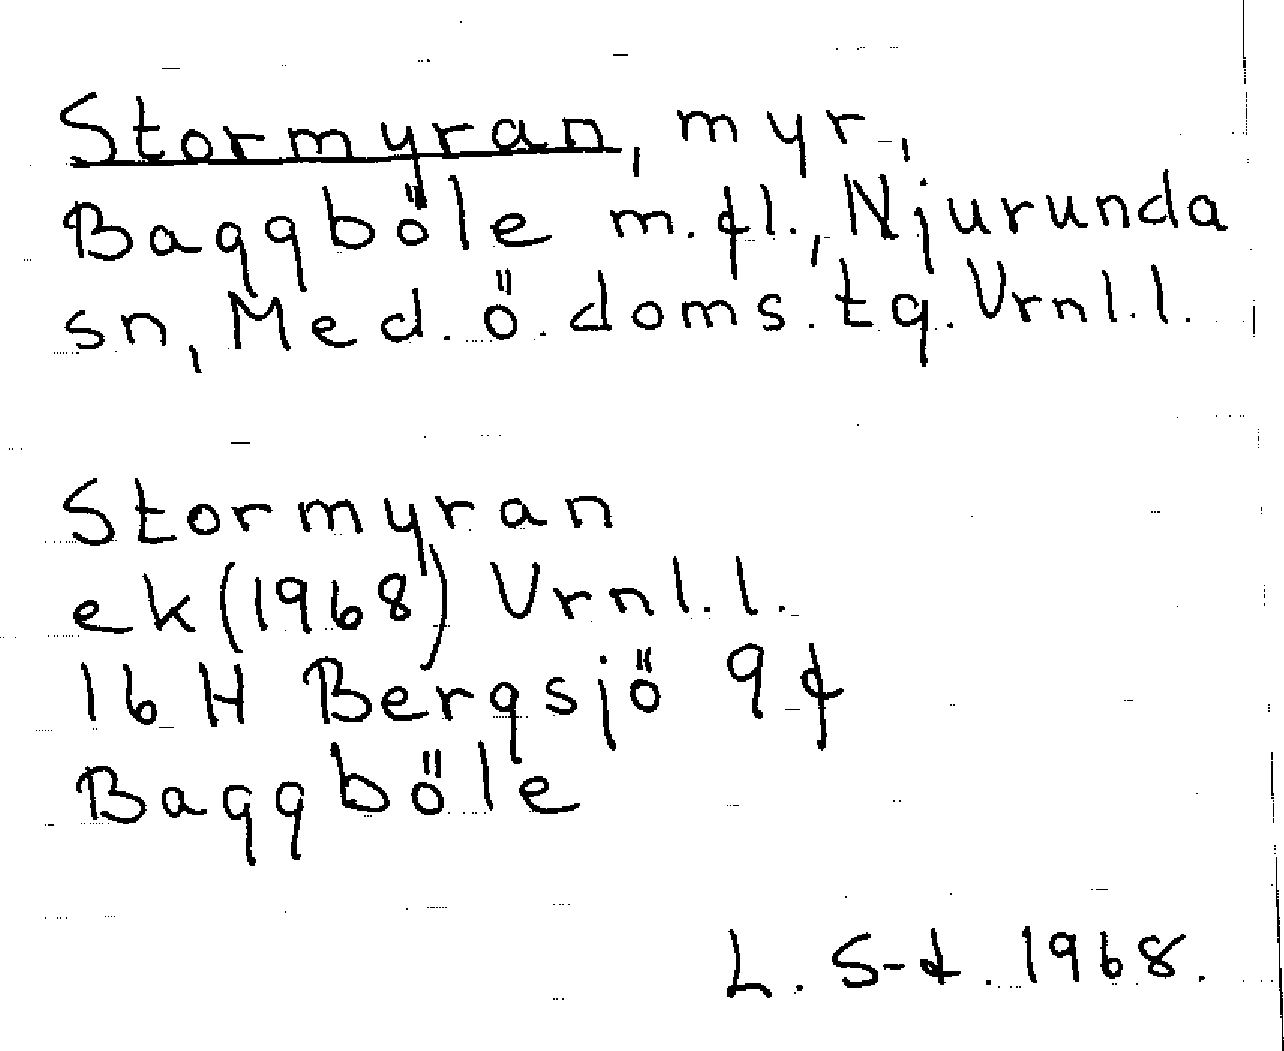 Stormyran, myr,
Baggböle m.fl., Njurunda
sn, Med. ö. doms. tg. Vrnl. l.
Stormyran
ek (1968) Vrnl. l.
16 H Bergsjö 9 f
Baggböle
L. S-d. 1968.